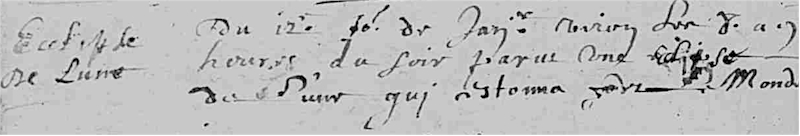 Eclipse
de Lune
Du 12e jo.r de Janr. viron les 8. a 9
houres du soir parut une Eclipse
de Lune qui estonna Mond